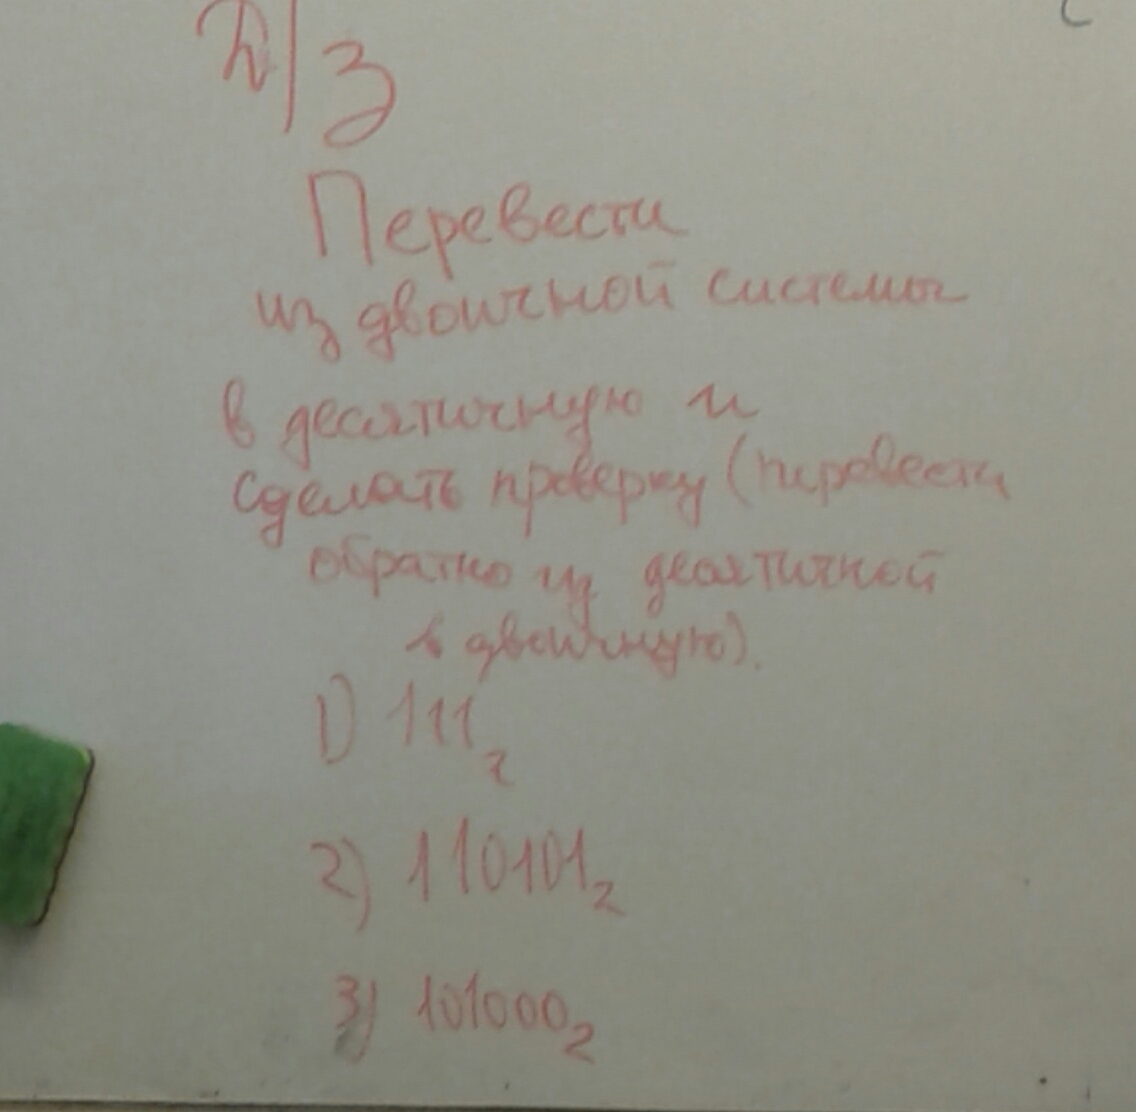 Д/З
Перевести
из двоичной системы
в десятичную и
сделать проверку (перевести
обратно из десятичной
в двоичную).
1) 111₂
2) 110101₂
3) 101000₂